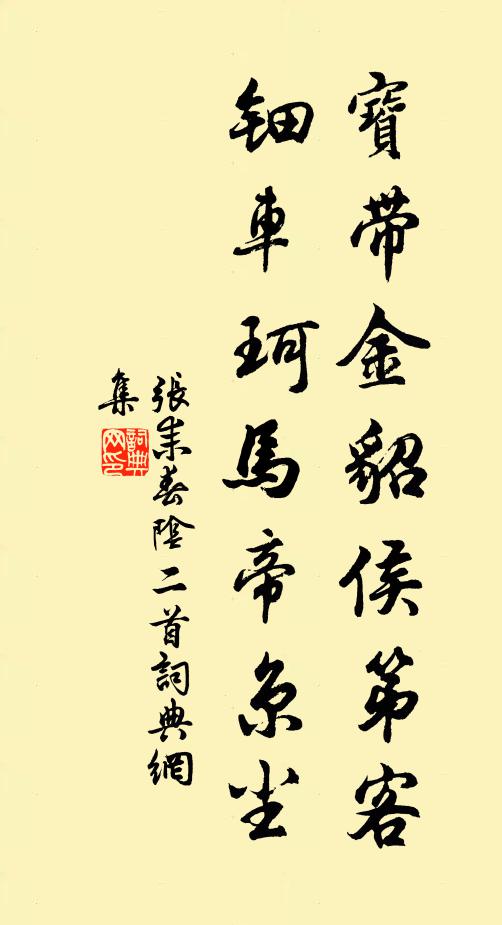 寶帶金貂侯第客
鈿車珂馬帝京塵
張耒春陰二首詞典網
集
詞典
网印